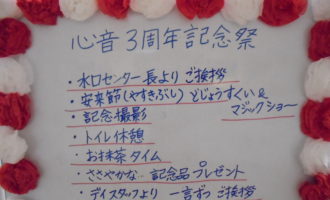 心音3周年記念祭
・水口センター長より ご挨拶
・安来節(やすきぶし) どじょうすくい &
マジックショー
・記念撮影
・トイレ休憩
・お抹茶タイム
・ささやかな‥記念品プレゼント
・デイスタッフより 一言ずつ ご挨拶